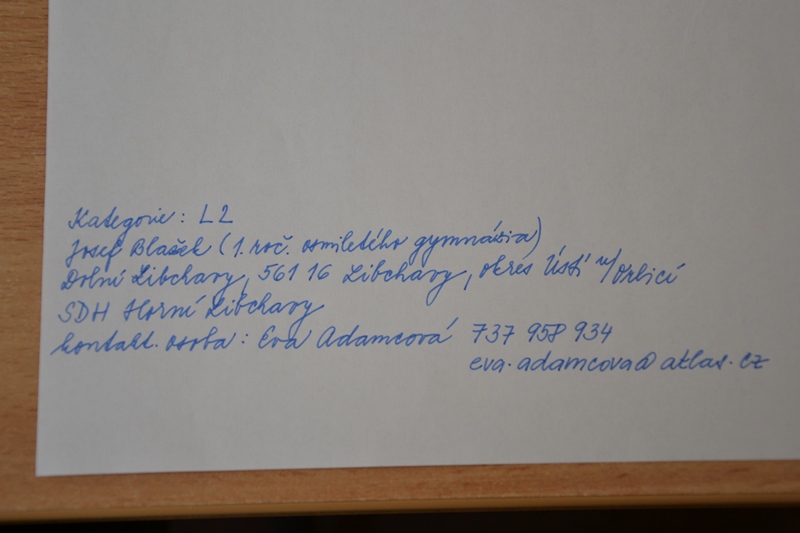 Kategorie: L2
Josef Blažek (1. roč. osmiletého gymnázia)
Dolní Libchavy, 561 16 Libchavy, okres Ústí n/Orlicí
SDH Horní Libchavy
kontakt. osoba: Eva Adamcová 737 958 934
eva.adamcova@atlas.cz